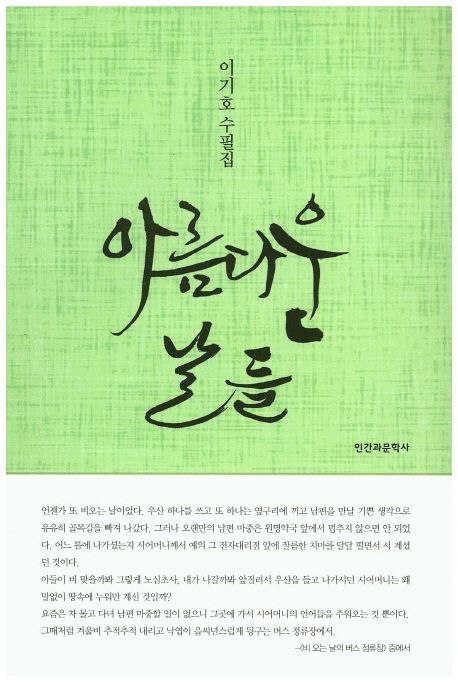 이기호 수필집
아름다운
날들
인간과문학사
언젠가 또 비오는 날이었다. 우산 하나를 쓰고 또 하나는 옆구리에 끼고 남편을 만날 기쁜 생각으로
유유히 골목길을 빠져 나갔다. 그러나 오랜만의 남편 마중은 원명약국 앞에서 멈추지 않으면 안 되었
다. 어느 틈에 나가셨는지 시어머니께서 예의 그 전자대리점 앞에 잘름한 치마를 달달 떨면서 서 계셨
던 것이다.
아들이 비 맞을까봐 그렇게 노심초사, 내가 나갈까봐 앞질러서 우산을 들고 나가시던 시어머니는 왜
말없이 땅속에 누워만 계신 것일까?
요즘은 차 몰고 다녀 남편 마중할 일이 없으니 그곳에 가서 시어머니의 언어들을 주워오는 것 뿐이다.
그때처럼 겨울비 추적추적 내리고 낙엽이 을씨년스럽게 뒹구는 버스 정류장에서.
-〈비 오는 날의 버스 정류장〉 중에서